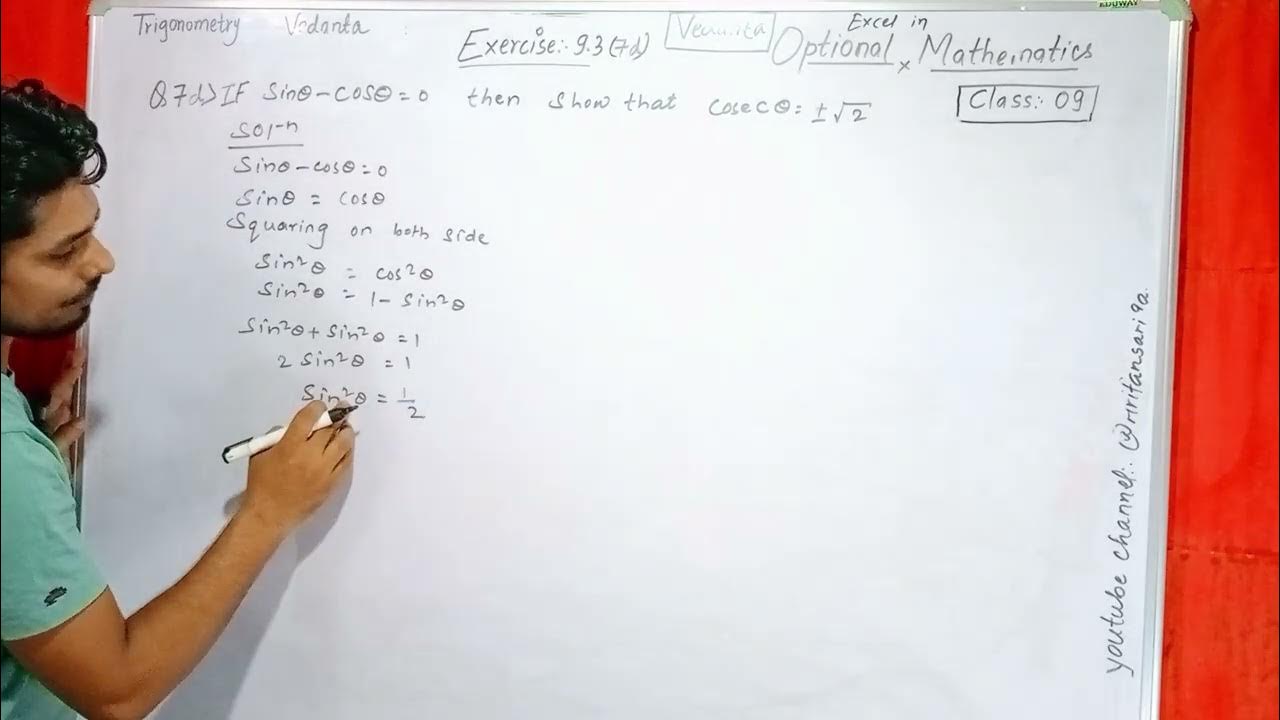 EDUWAY
Trigonometry Vedanta :
Exercise:- 9.3 (7d)
Excel in
Optional × Mathematics
Class:- 09
Q 7d> IF Sinθ - cosθ = 0 then show that cosec θ = ±√2
Sol-n
Sinθ - cosθ = 0
Sinθ = cosθ
Squaring on both side
Sin²θ = cos²θ
Sin²θ = 1 - Sin²θ
Sin²θ + Sin²θ = 1
2 Sin²θ = 1
Sin²θ = 1/2
youtube channel:- @mritansari9a